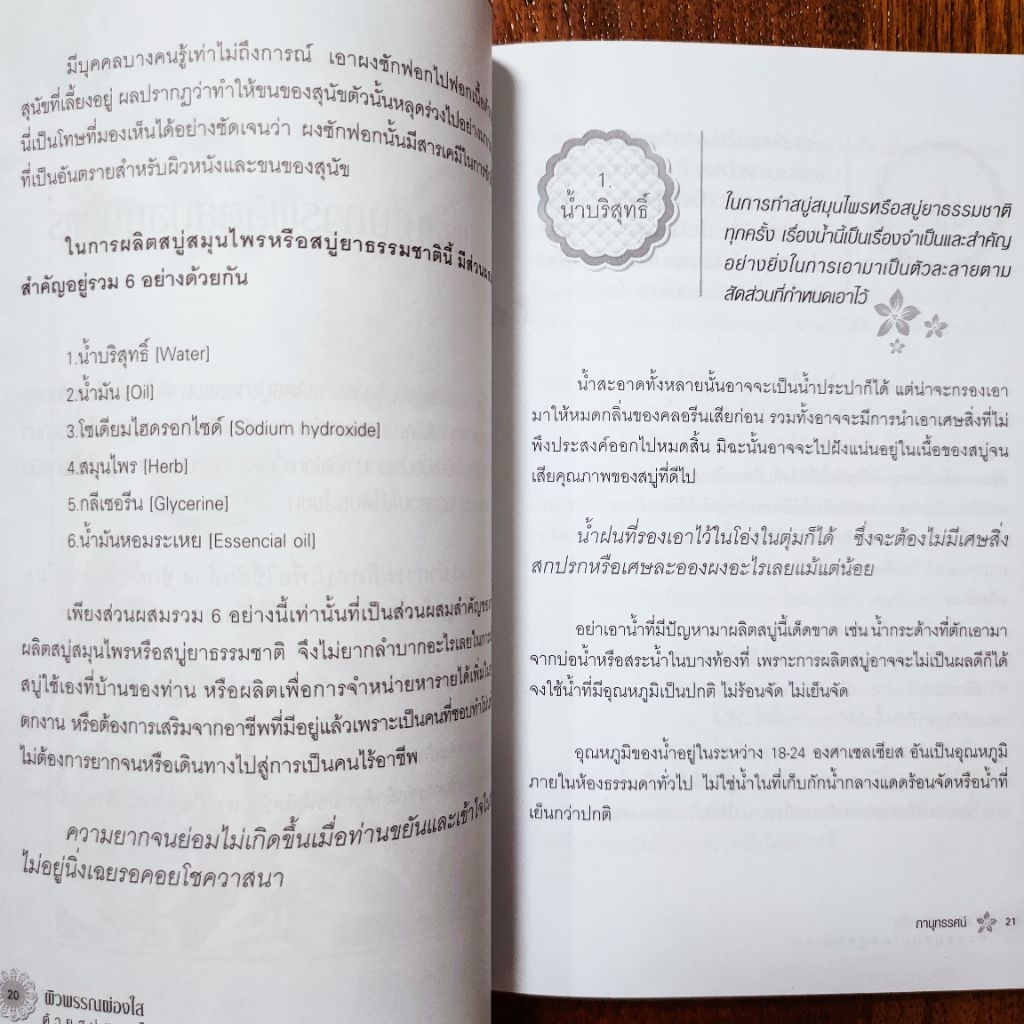 มีบุคคลบางคนรู้เท่าไม่ถึงการณ์ เอาผงซักฟอกไปฟอกเนื้อ
สุนัขที่เลี้ยงอยู่ ผลปรากฏว่าทำให้ขนของสุนัขตัวนั้นหลุดร่วงไปอย่าง
นี่เป็นโทษที่มองเห็นได้อย่างชัดเจนว่า ผงซักฟอกนั้นมีสารเคมีในการ
ที่เป็นอันตรายสำหรับผิวหนังและขนของสุนัข
ในการผลิตสบู่สมุนไพรหรือสบู่ยาธรรมชาตินี้ มีส่วน
สำคัญอยู่รวม 6 อย่างด้วยกัน
1.น้ำบริสุทธิ์ [Water]
2.น้ำมัน [Oil]
3.โซเดียมไฮดรอกไซด์ [Sodium hydroxide]
4.สมุนไพร [Herb]
5.กลีเซอรีน [Glycerine]
6.น้ำมันหอมระเหย [Essencial oil]
เพียงส่วนผสมรวม 6 อย่างนี้เท่านั้นที่เป็นส่วนผสมสำคัญ
ผลิตสบู่สมุนไพรหรือสบู่ยาธรรมชาติ จึงไม่ยากลำบากอะไรเลยในการ
สบู่ใช้เองที่บ้านของท่าน หรือผลิตเพื่อการจำหน่ายหารายได้เพิ่ม
ตกงาน หรือต้องการเสริมจากอาชีพที่มีอยู่แล้วเพราะเป็นคนที่ชอบทำ
ไม่ต้องการยากจนหรือเดินทางไปสู่การเป็นคนไร้อาชีพ
ความยากจนย่อมไม่เกิดขึ้นเมื่อท่านขยันและเข้าใจ
ไม่อยู่นิ่งเฉยรอคอยโชควาสนา
20
ผิวพรรณผ่องใส
1.
น้ำบริสุทธิ์
ในการทำสบู่สมุนไพรหรือสบู่ยาธรรมชาติ
ทุกครั้ง เรื่องน้ำนี้เป็นเรื่องจำเป็นและสำคัญ
อย่างยิ่งในการเอามาเป็นตัวละลายตาม
สัดส่วนที่กำหนดเอาไว้
น้ำสะอาดทั้งหลายนั้นอาจจะเป็นน้ำประปาก็ได้ แต่น่าจะกรองเอา
มาให้หมดกลิ่นของคลอรีนเสียก่อน รวมทั้งอาจจะมีการนำเอาเศษสิ่งที่ไม่
พึงประสงค์ออกไปหมดสิ้น มิฉะนั้นอาจจะไปฝังแน่นอยู่ในเนื้อของสบู่จน
เสียคุณภาพของสบู่ที่ดีไป
น้ำฝนที่รองเอาไว้ในโอ่งในตุ่มก็ได้ ซึ่งจะต้องไม่มีเศษสิ่ง
สกปรกหรือเศษละอองผงอะไรเลยแม้แต่น้อย
อย่าเอาน้ำที่มีปัญหามาผลิตสบู่นี้เด็ดขาด เช่น น้ำกระด้างที่ตักเอามา
จากบ่อน้ำหรือสระน้ำในบางท้องที่ เพราะการผลิตสบู่อาจจะไม่เป็นผลดีก็ได้
จงใช้น้ำที่มีอุณหภูมิเป็นปกติ ไม่ร้อนจัด ไม่เย็นจัด
อุณหภูมิของน้ำอยู่ในระหว่าง 18-24 องศาเซลเซียส อันเป็นอุณหภูมิ
ภายในห้องธรรมดาทั่วไป ไม่ใช่น้ำในที่เก็บกักน้ำกลางแดดร้อนจัดหรือน้ำที่
เย็นกว่าปกติ
ภานุทรรศน์ 21